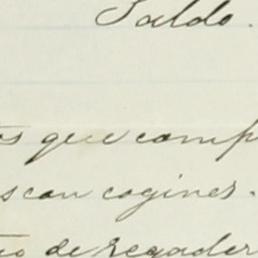 Saldo.
os que comp
scan cogines.
io de regader